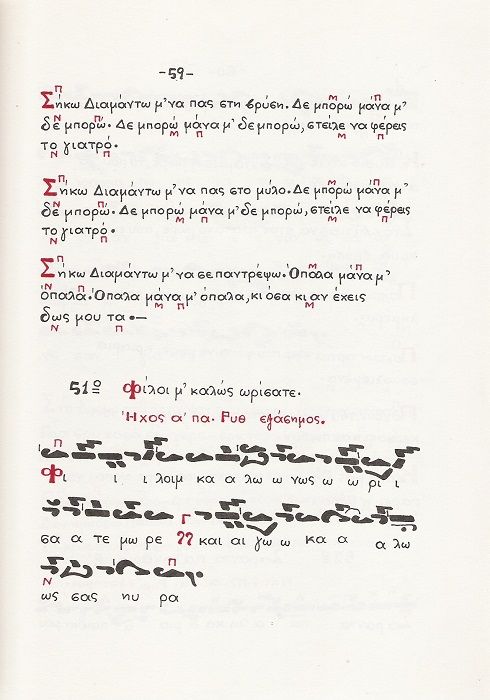 -59-
Σήκω Διαμάντω μ' να πας στη βρύση. Δε μπορώ μάνα μ'
δε μπορώ. Δε μπορώ μάνα μ' δε μπορώ, στείλε να φέρεις
το γιατρό.
Σήκω Διαμάντω μ' να πας στο μύλο. Δε μπορώ μάνα μ'
δε μπορώ. Δε μπορώ μάνα μ' δε μπορώ, στείλε να φέρεις
το γιατρό.
Σήκω Διαμάντω μ' να σε παντρέψω. Όπαλα μάνα μ'
όπαλα. Όπαλα μάνα μ' όπαλα, κι όσα κι αν έχεις
δως μου τα.—
51ο Φίλοι μ' καλώς ωρίσατε.
Ήχος α' πα. Ρυθ εξάσημος.
Φι ι ι λοιμ κα α λω ω νως ω ω ρι ι
σα α τε μω ρε και αι γω ω κα α α λω
ως σας ηυ ρα